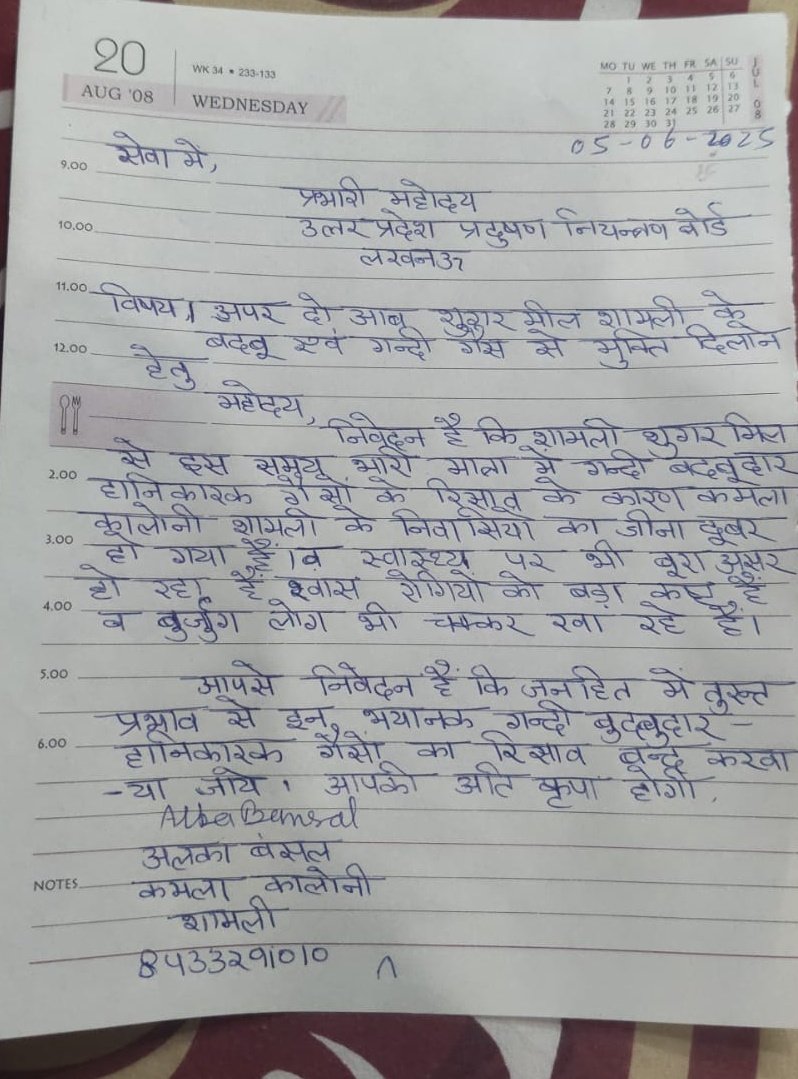 20
WK 34 • 233-133
AUG '08
WEDNESDAY
MO TU WE TH FR SA SU
1 2 3 4 5 6
7 8 9 10 11 12 13
14 15 16 17 18 19 20
21 22 23 24 25 26 27
28 29 30 31
JUL 08
05-06-2025
9.00 सेवा में,
प्रभारी महोदय
10.00 उत्तर प्रदेश प्रदुषण नियन्त्रण बोर्ड
लखनऊ
11.00 विषय। अपर दो आब शुगर मील शामली के
12.00 बदबू एवं गन्दी गैस से मुक्ति दिलाने
हेतु
महोदय,
निवेदन है कि शामली शुगर मिल
से इस समय भारी मात्रा में गन्दी बदबूदार
2.00 हानिकारक गैसों के रिसाव के कारण कमला
कालोनी शामली के निवासियों का जीना दूबर
3.00 हो गया है। व स्वास्थ्य पर भी बूरा असर
हो रहा है श्वास रोगियों को बड़ा कष्ट है
4.00 व बुर्जुग लोग भी चक्कर खा रहे हैं।
5.00 आपसे निवेदन है कि जनहित में तुरन्त
प्रभाव से इन भयानक गन्दी बुदबुदार -
6.00 हानिकारक गैसों का रिसाव बन्द करवा
-या जाये। आपकी अति कृपा होगी.
Alka Bansal
अलका बंसल
NOTES कमला कालोनी
शामली
8433291010